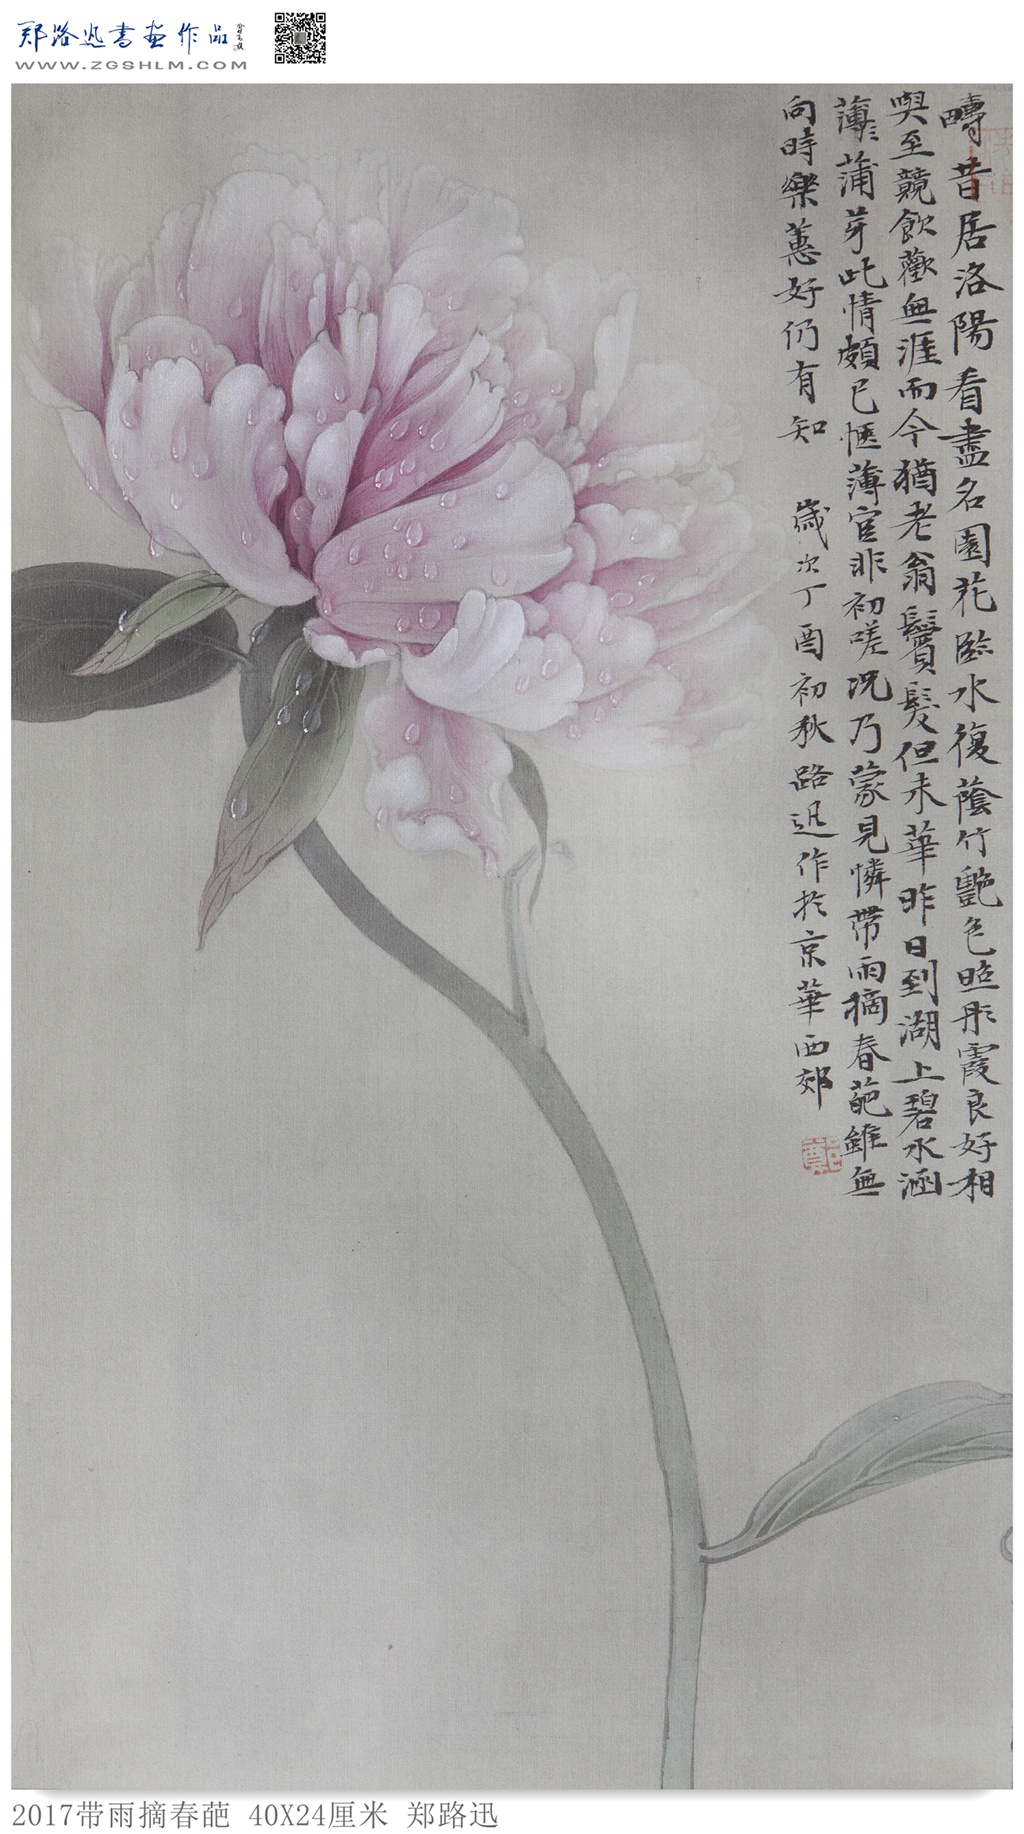 郑路迅書画作品
WWW.ZGSHLM.COM
疇昔居洛陽看盡名園花臨水復蔭竹艷色照彤霞良好相
喫至競飲歡無涯而今猶老翁鬢髮但未華昨日到湖上碧水涵
薄薄蒲芽此情頗已愜薄宦非初嗟况乃蒙見憐帶雨摘春葩雖無
向時樂蕙好仍有知
歲次丁酉初秋路迅作於京華西郊
鄭
2017带雨摘春葩 40X24厘米 郑路迅